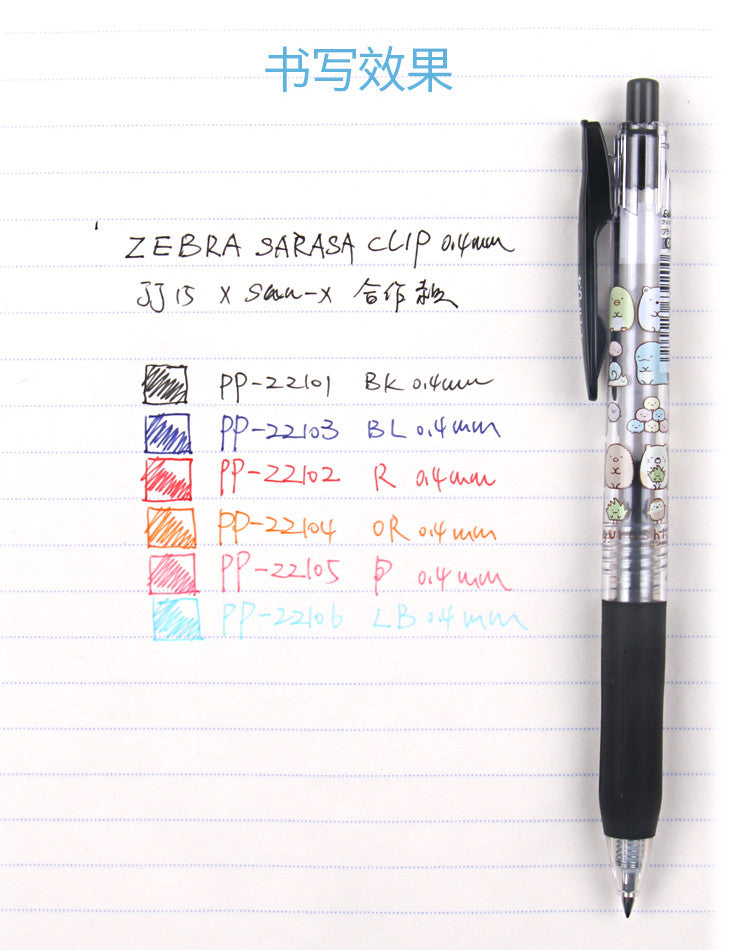 书写效果
ZEBRA SARASA CLIP 0.4mm
JJ15 X San-X 合作款
PP-22101 BK 0.4mm
PP-22103 BL 0.4mm
PP-22102 R 0.4mm
PP-22104 OR 0.4mm
PP-22105 P 0.4mm
PP-22106 LB 0.4mm